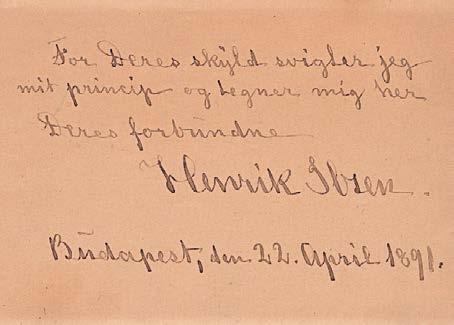 For Deres skÿld svigter jeg
mit princip og tegner mig her
Deres forbundne
Henrik Ibsen.
Budapest, den 22. April 1891.